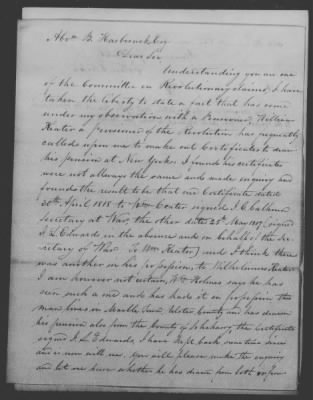 Abm B. Hasbrouck Esq
Dear Sir
Understanding you are one
of the Committee on Revolutionary claims, I have
taken the liberty to state a fact that has come
under my observation with a Pensioner, William
Keator a pensioner of the Revolution has frequently
called upon me to make out Certificates to draw
his pension at New York. I found his certificates
were not allways the same and made inquiry and
found the result to be that one Certificate dated
20th April 1818 to Wm Coater signed J. C. Calhoun
Secretary at War, the other dated 25th May signed
J L Edwards in the absence and on behalf of the Se-
cretary of War to Wm Keator, and I think there
was another in his possession, to Wilhelmus Keator
I am however not certain, Wm Holmes says he has
seen such a one and has had it on possession the
man lives in Marble Town, Ulster County and has drawn
his pension also from the County of Schohary, the Certificate
signed J. L Edwards, I have kept back sometime since
and is now with me. You will please make the enquiry
and let me know whether he has drawn from both